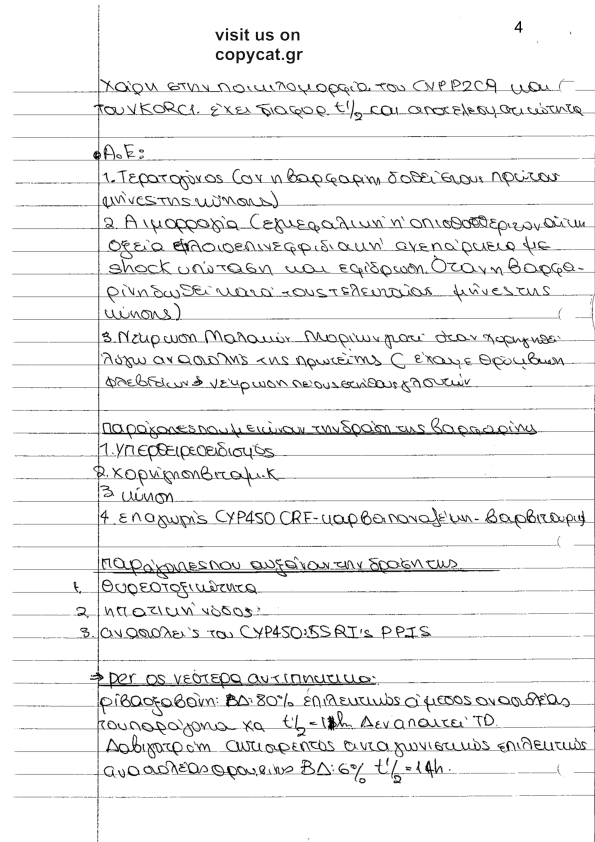 visit us on
copycat.gr
4
χάρη στην ποικιλομορφία του CYPP2C9 και
του VKORC1. έχει διαφορ. t1/2 και αποτελεσματικότητα
• Α.Ε:
1. Τερατογόνος (αν η βαρφαρίνη δοθεί στους πρώτους
μήνες της κύησης)
2. Αιμορραγία (εγκεφαλική ή οπισθοπεριτοναϊκή
οξεία φλοιοεπινεφριδιακή ανεπάρκεια με
shock υπόταση και εφίδρωση. Όταν η βαρφα-
ρίνη δωθεί κατά τους τελευταίους μήνες της
κύησης)
3. Νέκρωση Μαλακών Μορίων γιατί όταν χορηγηθεί
λόγω αναστολής της πρωτεΐνης C έχουμε θρόμβωση
φλεβιδίων → νέκρωση στήθους γλουτών
παράγοντες που μειώνουν την δράση της βαρφαρίνης
1. υπερθειρεοειδισμός
2. χορήγηση βιταμ. Κ
3 κύηση
4. επαγωγείς CYP450 CRF-καρβαμαζεπίνη-βαρβιτουρικ
παράγοντες που αυξάνουν την δράση της
1. θυρεοτοξικότητα
2. ηπατική νόσος.
3. αναστολείς του CYP450: SSRI's PPIS
→ per os νεότερα αντιπηκτικά:
ριβαροξαβάνη: ΒΔ: 80% επιλεκτικός άμεσος αναστολέας
του παράγοντα χα t1/2 = 11h. Δεν απαιτεί TD.
Δαβιγατράνη αντιστρεπτός ανταγωνιστικός επιλεκτικός
αναστολέας θρομβίνης ΒΔ: 6% t1/2 = 14h.